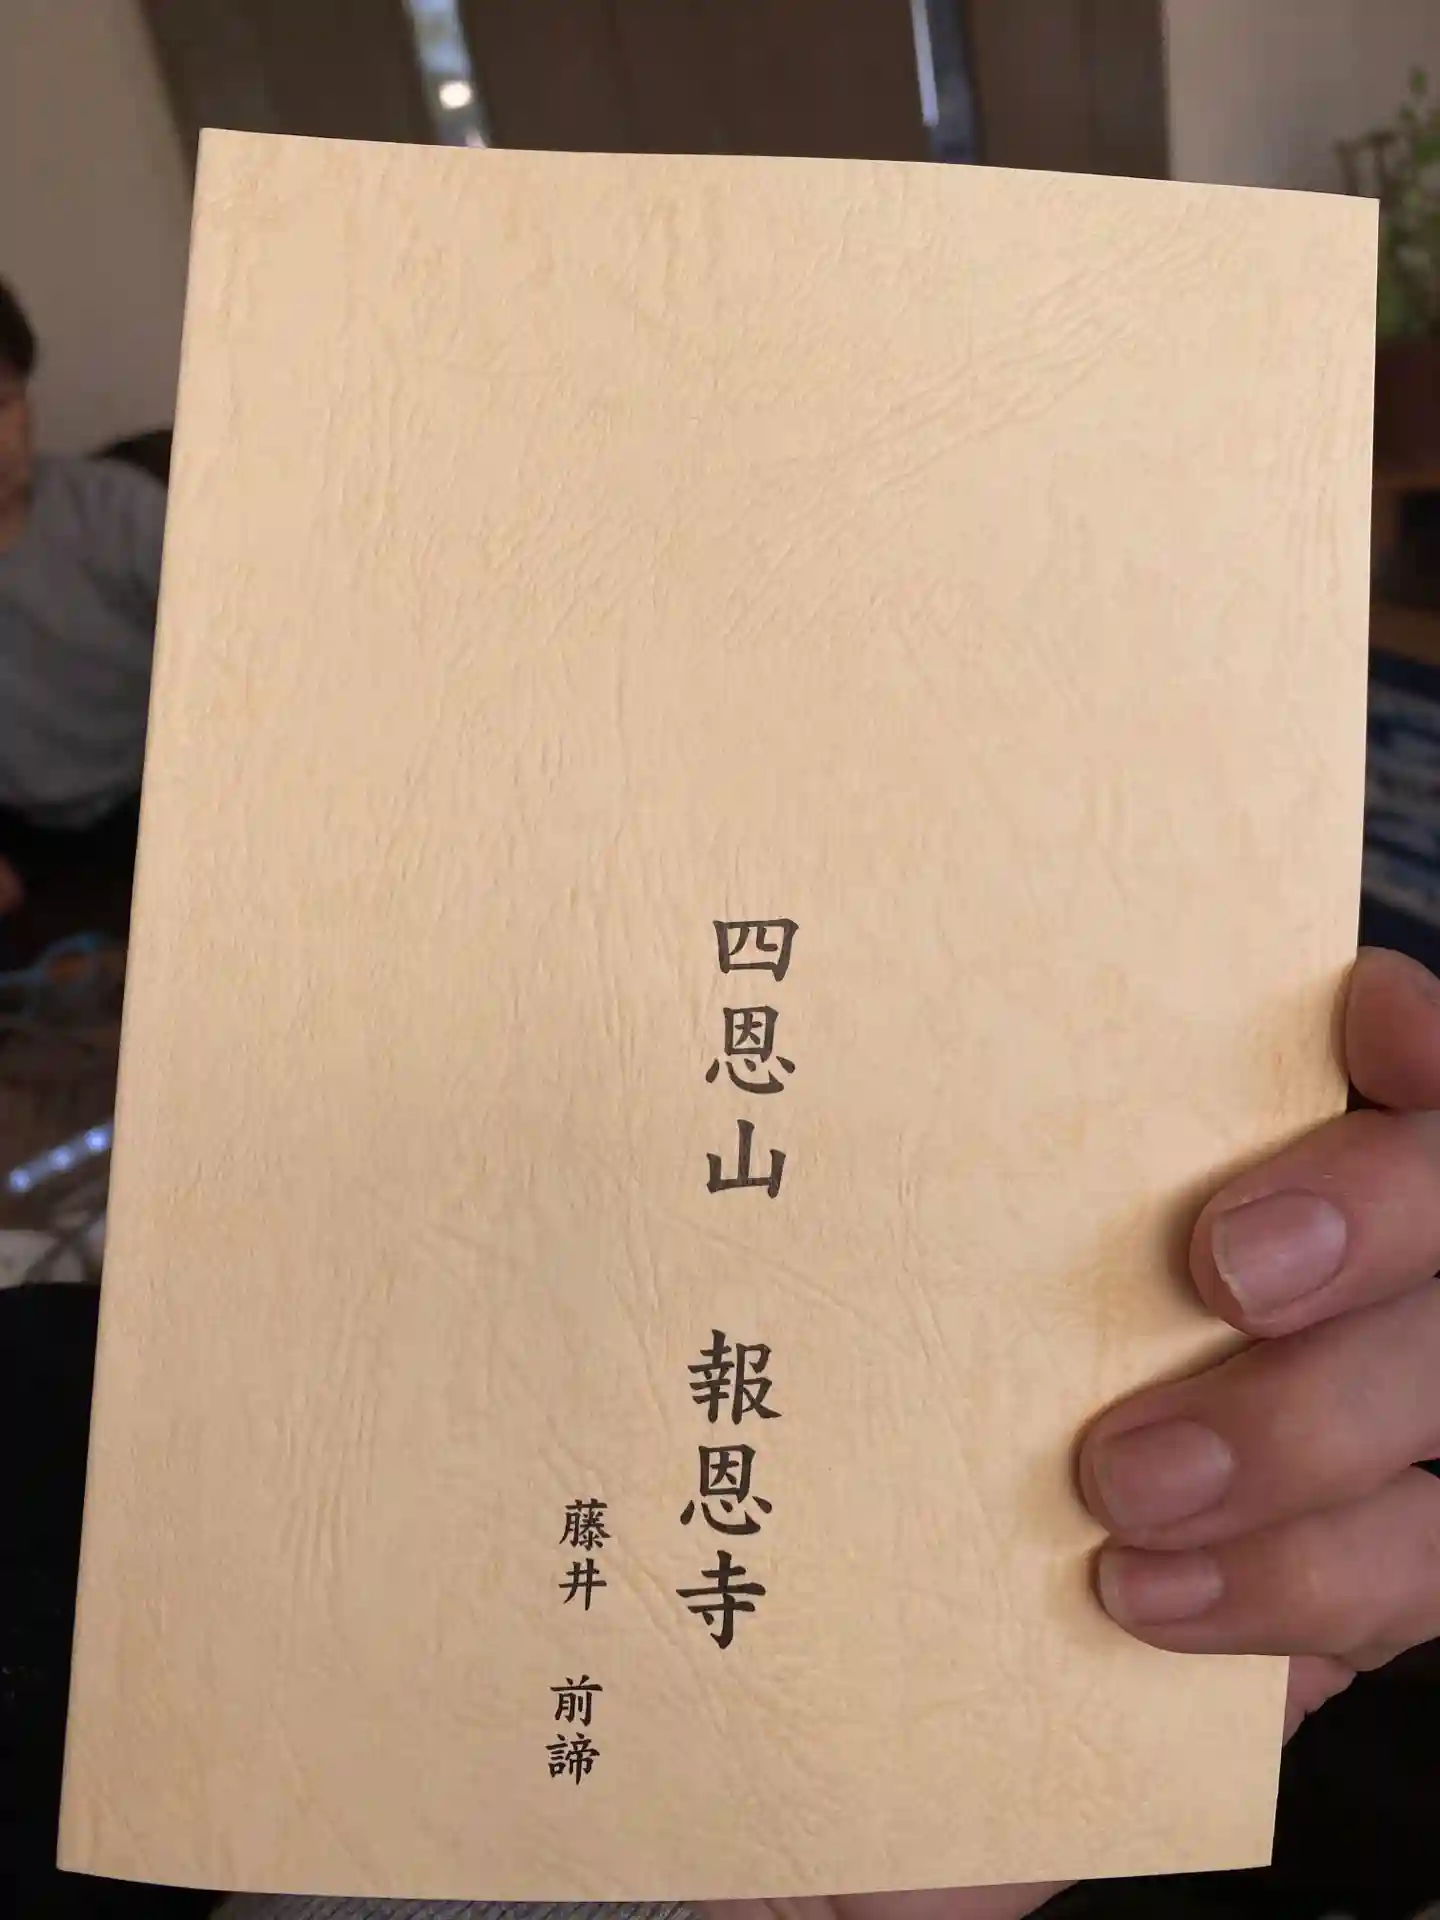 四恩山 報恩寺
藤井 前諦